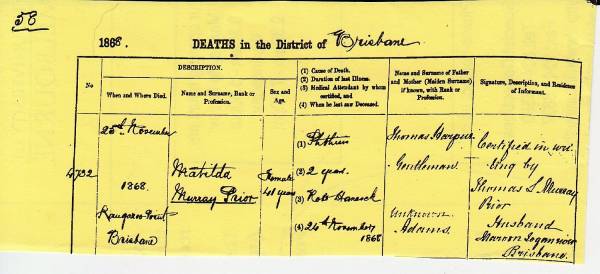 58
1868. DEATHS in the District of Brisbane
DESCRIPTION.
No
When and Where Died.
Name and Surname, Rank or Profession.
Sex and Age.
(1) Cause of Death.
(2) Duration of last Illness.
(3) Medical Attendant by whom certified, and
(4) When he last saw Deceased.
Name and Surname of Father and Mother (Maiden Surname) if known, with Rank or Profession.
Signature, Description, and Residence of Informant.
4732
25th November
1868.
Kangaroo Point
Brisbane
Matilda
Murray Prior
Female
41 years
(1) Phthisis
(2) 2 years.
(3) Robt Hancock
(4) 24th November
1868
Thomas Harpur
Gentleman.
Unknown
Adams.
Certified in wri
ting by
Thomas L. Murray
Prior
Husband
Maroon Logan River
Brisbane.